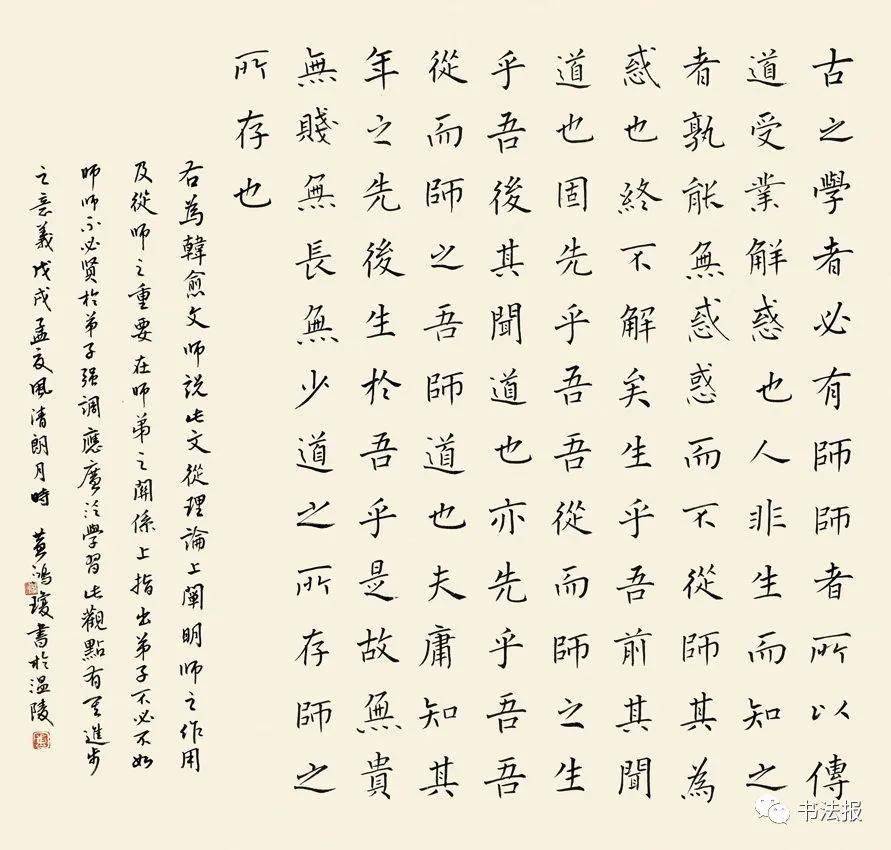 古之學者必有師師者所以傳
道受業解惑也人非生而知之
者孰能無惑惑而不從師其為
惑也終不解矣生乎吾前其聞
道也固先乎吾吾從而師之生
乎吾後其聞道也亦先乎吾吾
從而師之吾師道也夫庸知其
年之先後生於吾乎是故無貴
無賤無長無少道之所存師之
所存也
右為韓愈文師說此文從理論上闡明師之作用
及從師之重要在師弟之關係上指出弟子不必不如
師師不必賢於弟子强調應廣泛學習此觀點有其進步
之意義戊戌孟夏風清朗月時 黃鴻瓊書於温陵
书法报